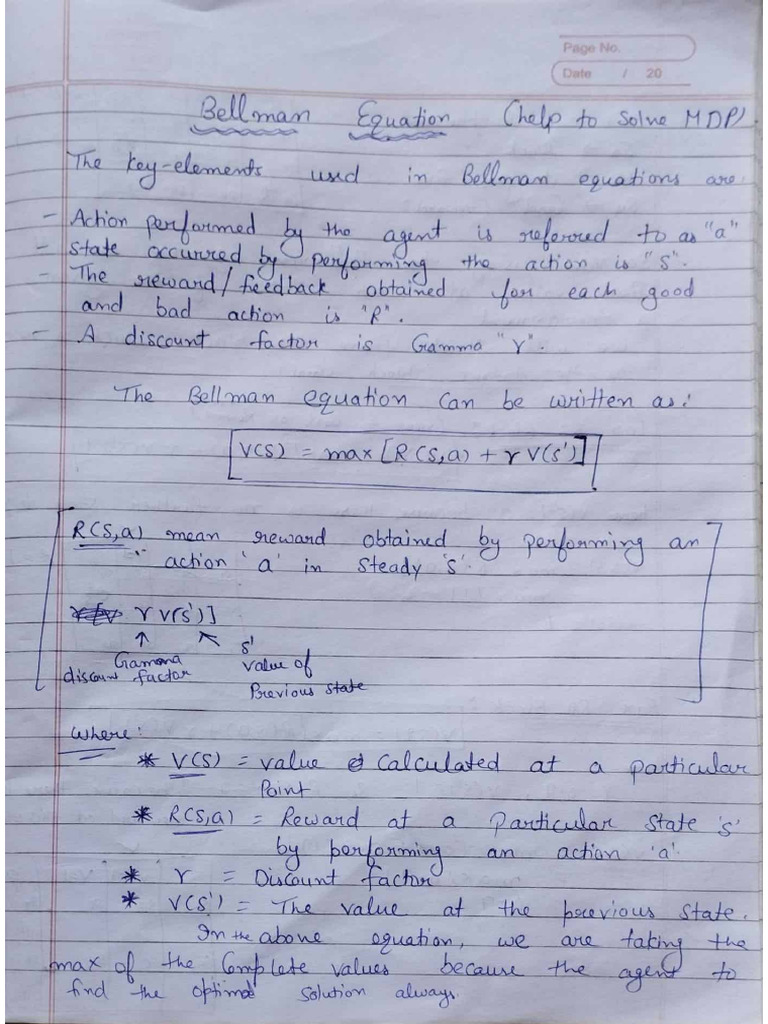 Page No.
Date / 20
Bellman Equation (help to solve MDP)
The key-elements used in Bellman equations are:
- Action performed by the agent is referred to as "a"
- State occurred by performing the action is "s".
- The reward/feedback obtained for each good
and bad action is "R".
- A discount factor is Gamma "γ".
The Bellman equation can be written as:
V(s) = max [R(s,a) + γ V(s')]
R(s,a) mean reward obtained by performing an
action 'a' in steady 's'.
γ V(s')]
↑ ↖ s'
Gamma value of
discount factor Previous state
Where:
* V(s) = value calculated at a particular
Point
* R(s,a) = Reward at a Particular state 's'
by performing an action 'a'.
* γ = Discount factor
* V(s') = The value at the previous state.
In the above equation, we are taking the
max of the Complete values because the agent to
find the optimal solution always.